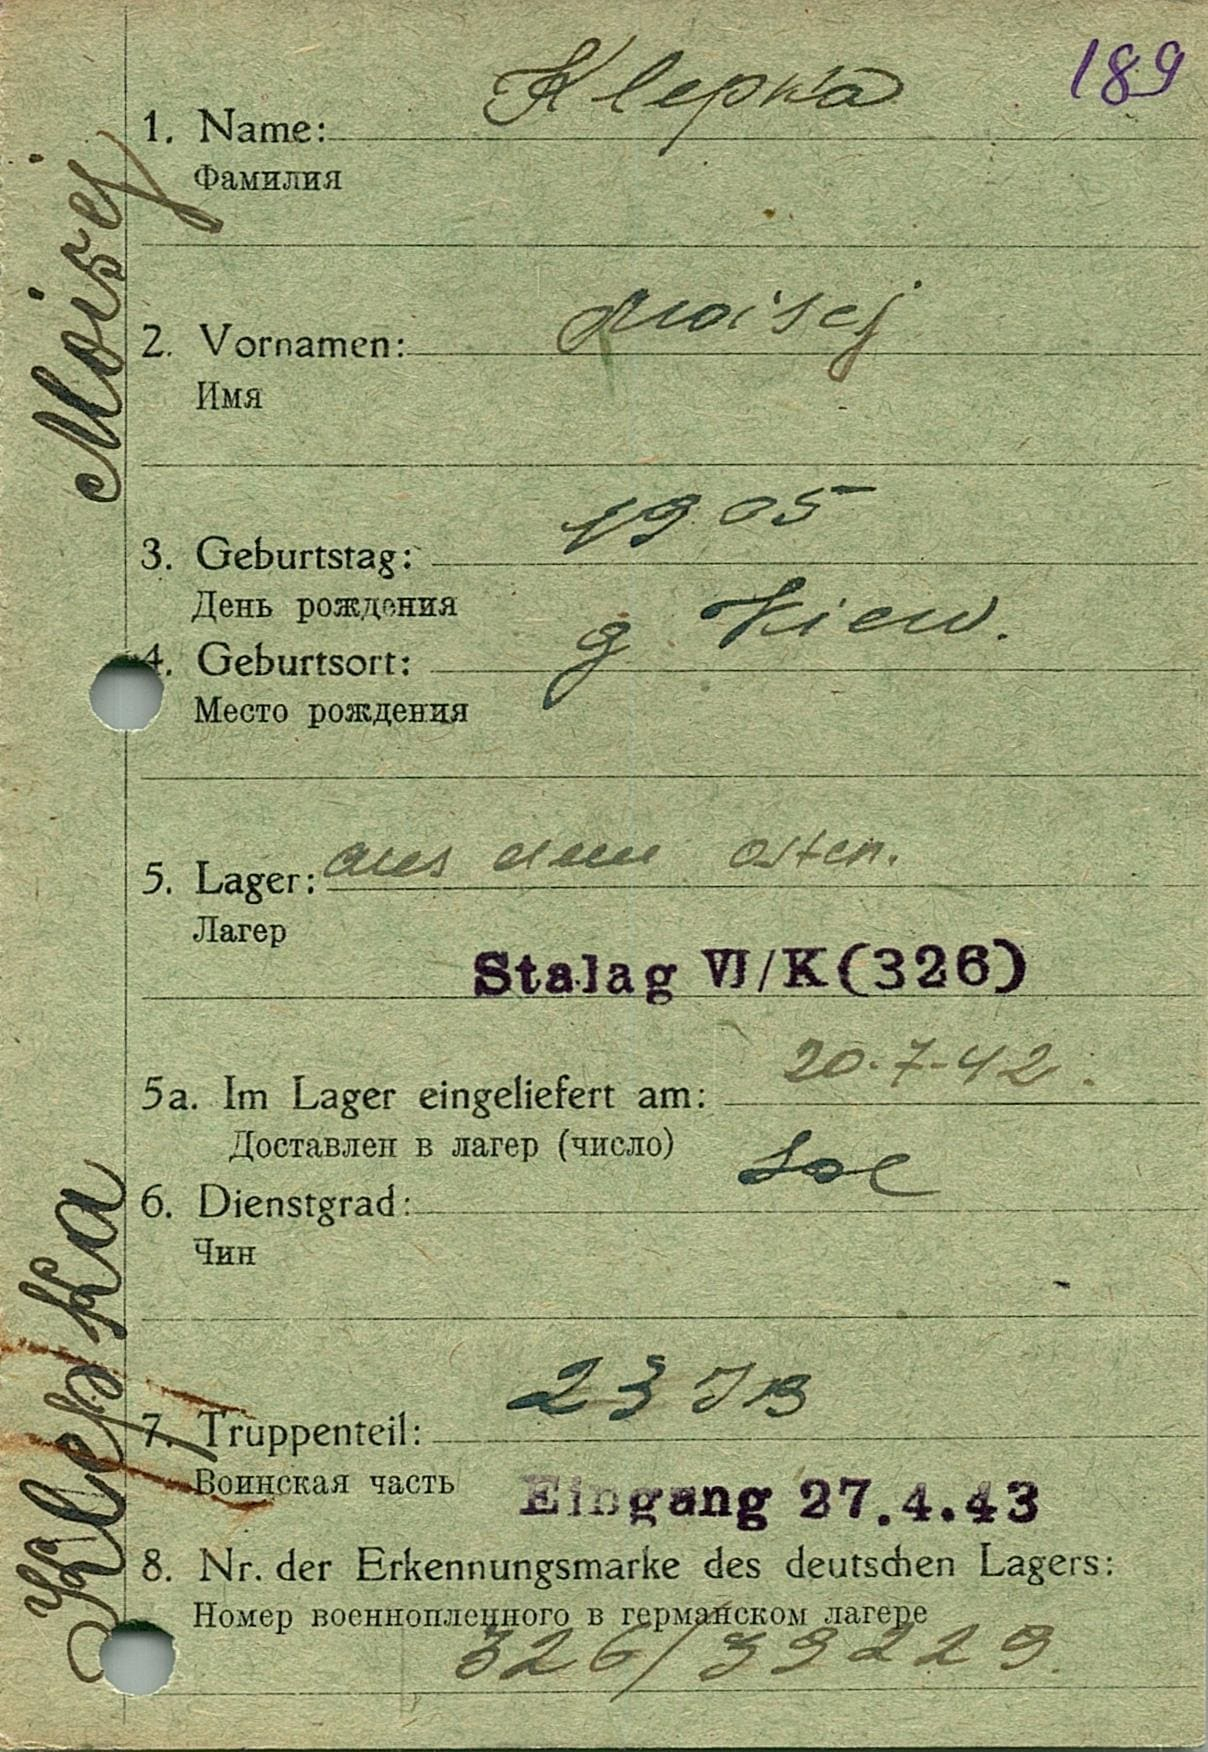 189
Klepka
1. Name:
Фамилия
Moisej
2. Vornamen:
Имя
1905
3. Geburtstag:
День рождения
g Kiew.
4. Geburtsort:
Место рождения
aus dem Osten.
5. Lager:
Лагер
Stalag VI/K(326)
20.7.42.
5a. Im Lager eingeliefert am:
Доставлен в лагер (число)
Sol
6. Dienstgrad:
Чин
23 JB
7. Truppenteil:
Воинская часть
Eingang 27.4.43
8. Nr. der Erkennungsmarke des deutschen Lagers:
Номер военнопленного в германском лагере
326/39229
Klepka Moisej